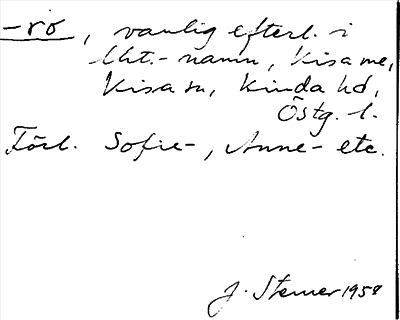 -ro, vanlig efterl. i
lht.-namn, Kisa me,
Kisa sn, Kinda hd,
Östg. l.
Förl. Sofie-, Anne- etc.
J. Stemer 1958